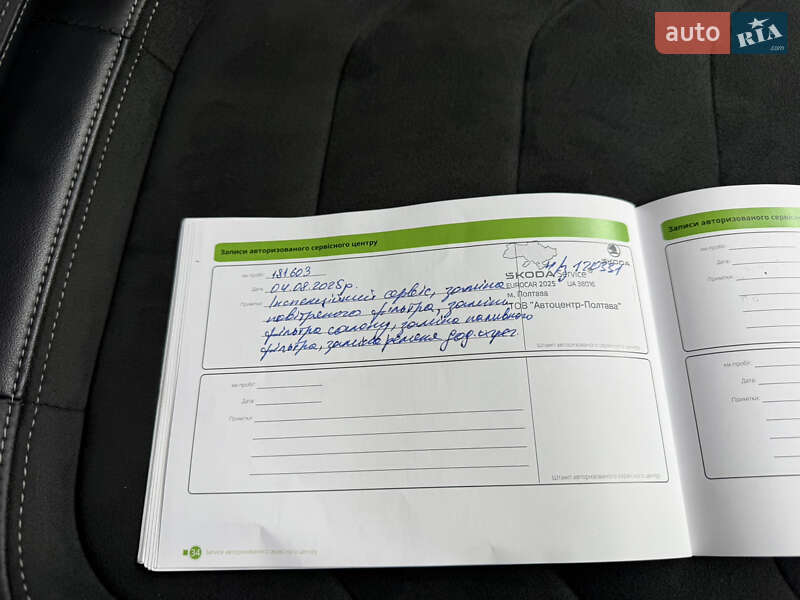 auto RIA.com
Записи авторизованого сервісного центру
км пробіг: 181.603
Дата: 04.08.2025р.
Примітки: Інспекційний сервіс, заміна
повітряного фільтра, заміна
фільтра салону, заміна паливного
фільтра, заміна ременя дод.
ŠKODA Service
EUROCAR 2025 UA 38016
м. Полтава
"ТОВ "Автоцентр-Полтава"
ŠKODA
Штамп авторизованого сервісного центру
км пробіг:
Дата:
Примітки:
Штамп авторизованого сервісного центру
34 Записи авторизованого сервісного центру
Записи авторизованого сервісн
км пробіг:
Дата:
Примітки:
км пробіг:
Дата:
Примітки: